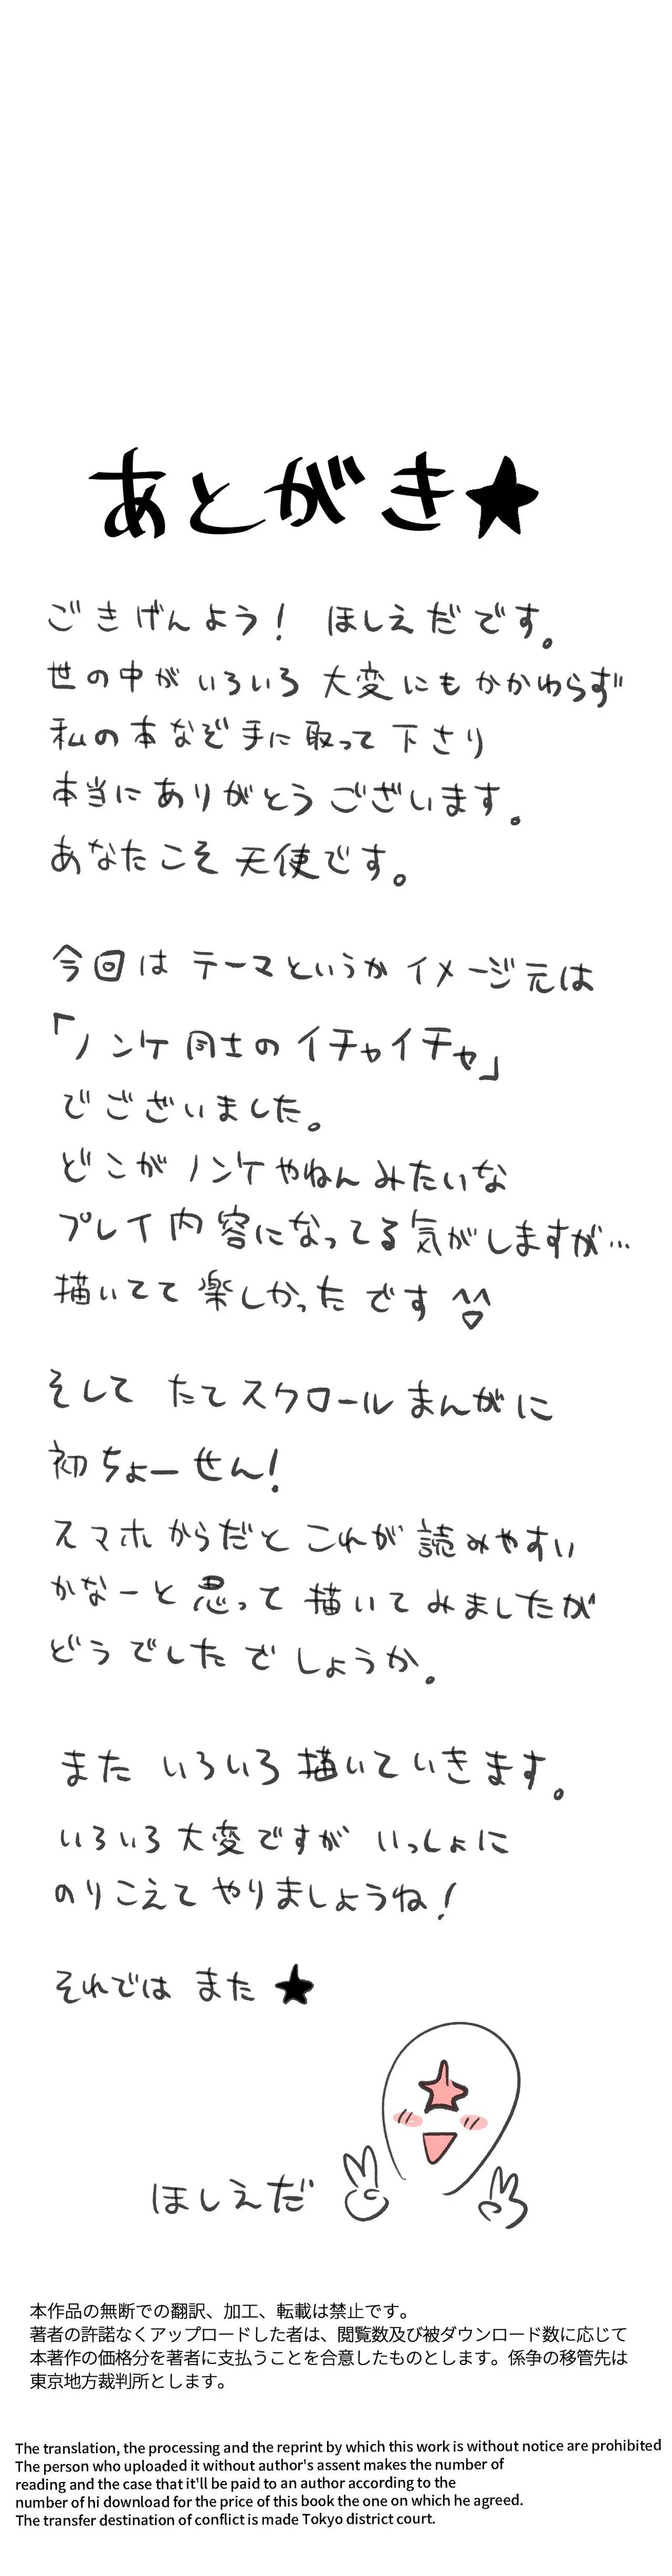 あとがき★
ごきげんよう! ほしえだです。
世の中がいろいろ大変にもかかわらず
私の本なぞ手に取って下さり
本当にありがとうございます。
あなたこそ天使です。
今回はテーマというかイメージ元は
「ノンケ同士のイチャイチャ」
でございました。
どこがノンケやねんみたいな
プレイ内容になってる気がしますが…
描いてて楽しかったです^▽^
そして たてスクロールまんがに
初ちょーせん!
スマホからだとこれが読みやすい
かなーと思って描いてみましたが
どうでしたでしょうか。
また いろいろ描いていきます。
いろいろ大変ですが いっしょに
のりこえてやりましょうね!
それでは また★
ほしえだ
本作品の無断での翻訳、加工、転載は禁止です。
著者の許諾なくアップロードした者は、閲覧数及び被ダウンロード数に応じて
本著作の価格分を著者に支払うことを合意したものとします。係争の移管先は
東京地方裁判所とします。
The translation, the processing and the reprint by which this work is without notice are prohibited
The person who uploaded it without author's assent makes the number of
reading and the case that it'll be paid to an author according to the
number of hi download for the price of this book the one on which he agreed.
The transfer destination of conflict is made Tokyo district court.